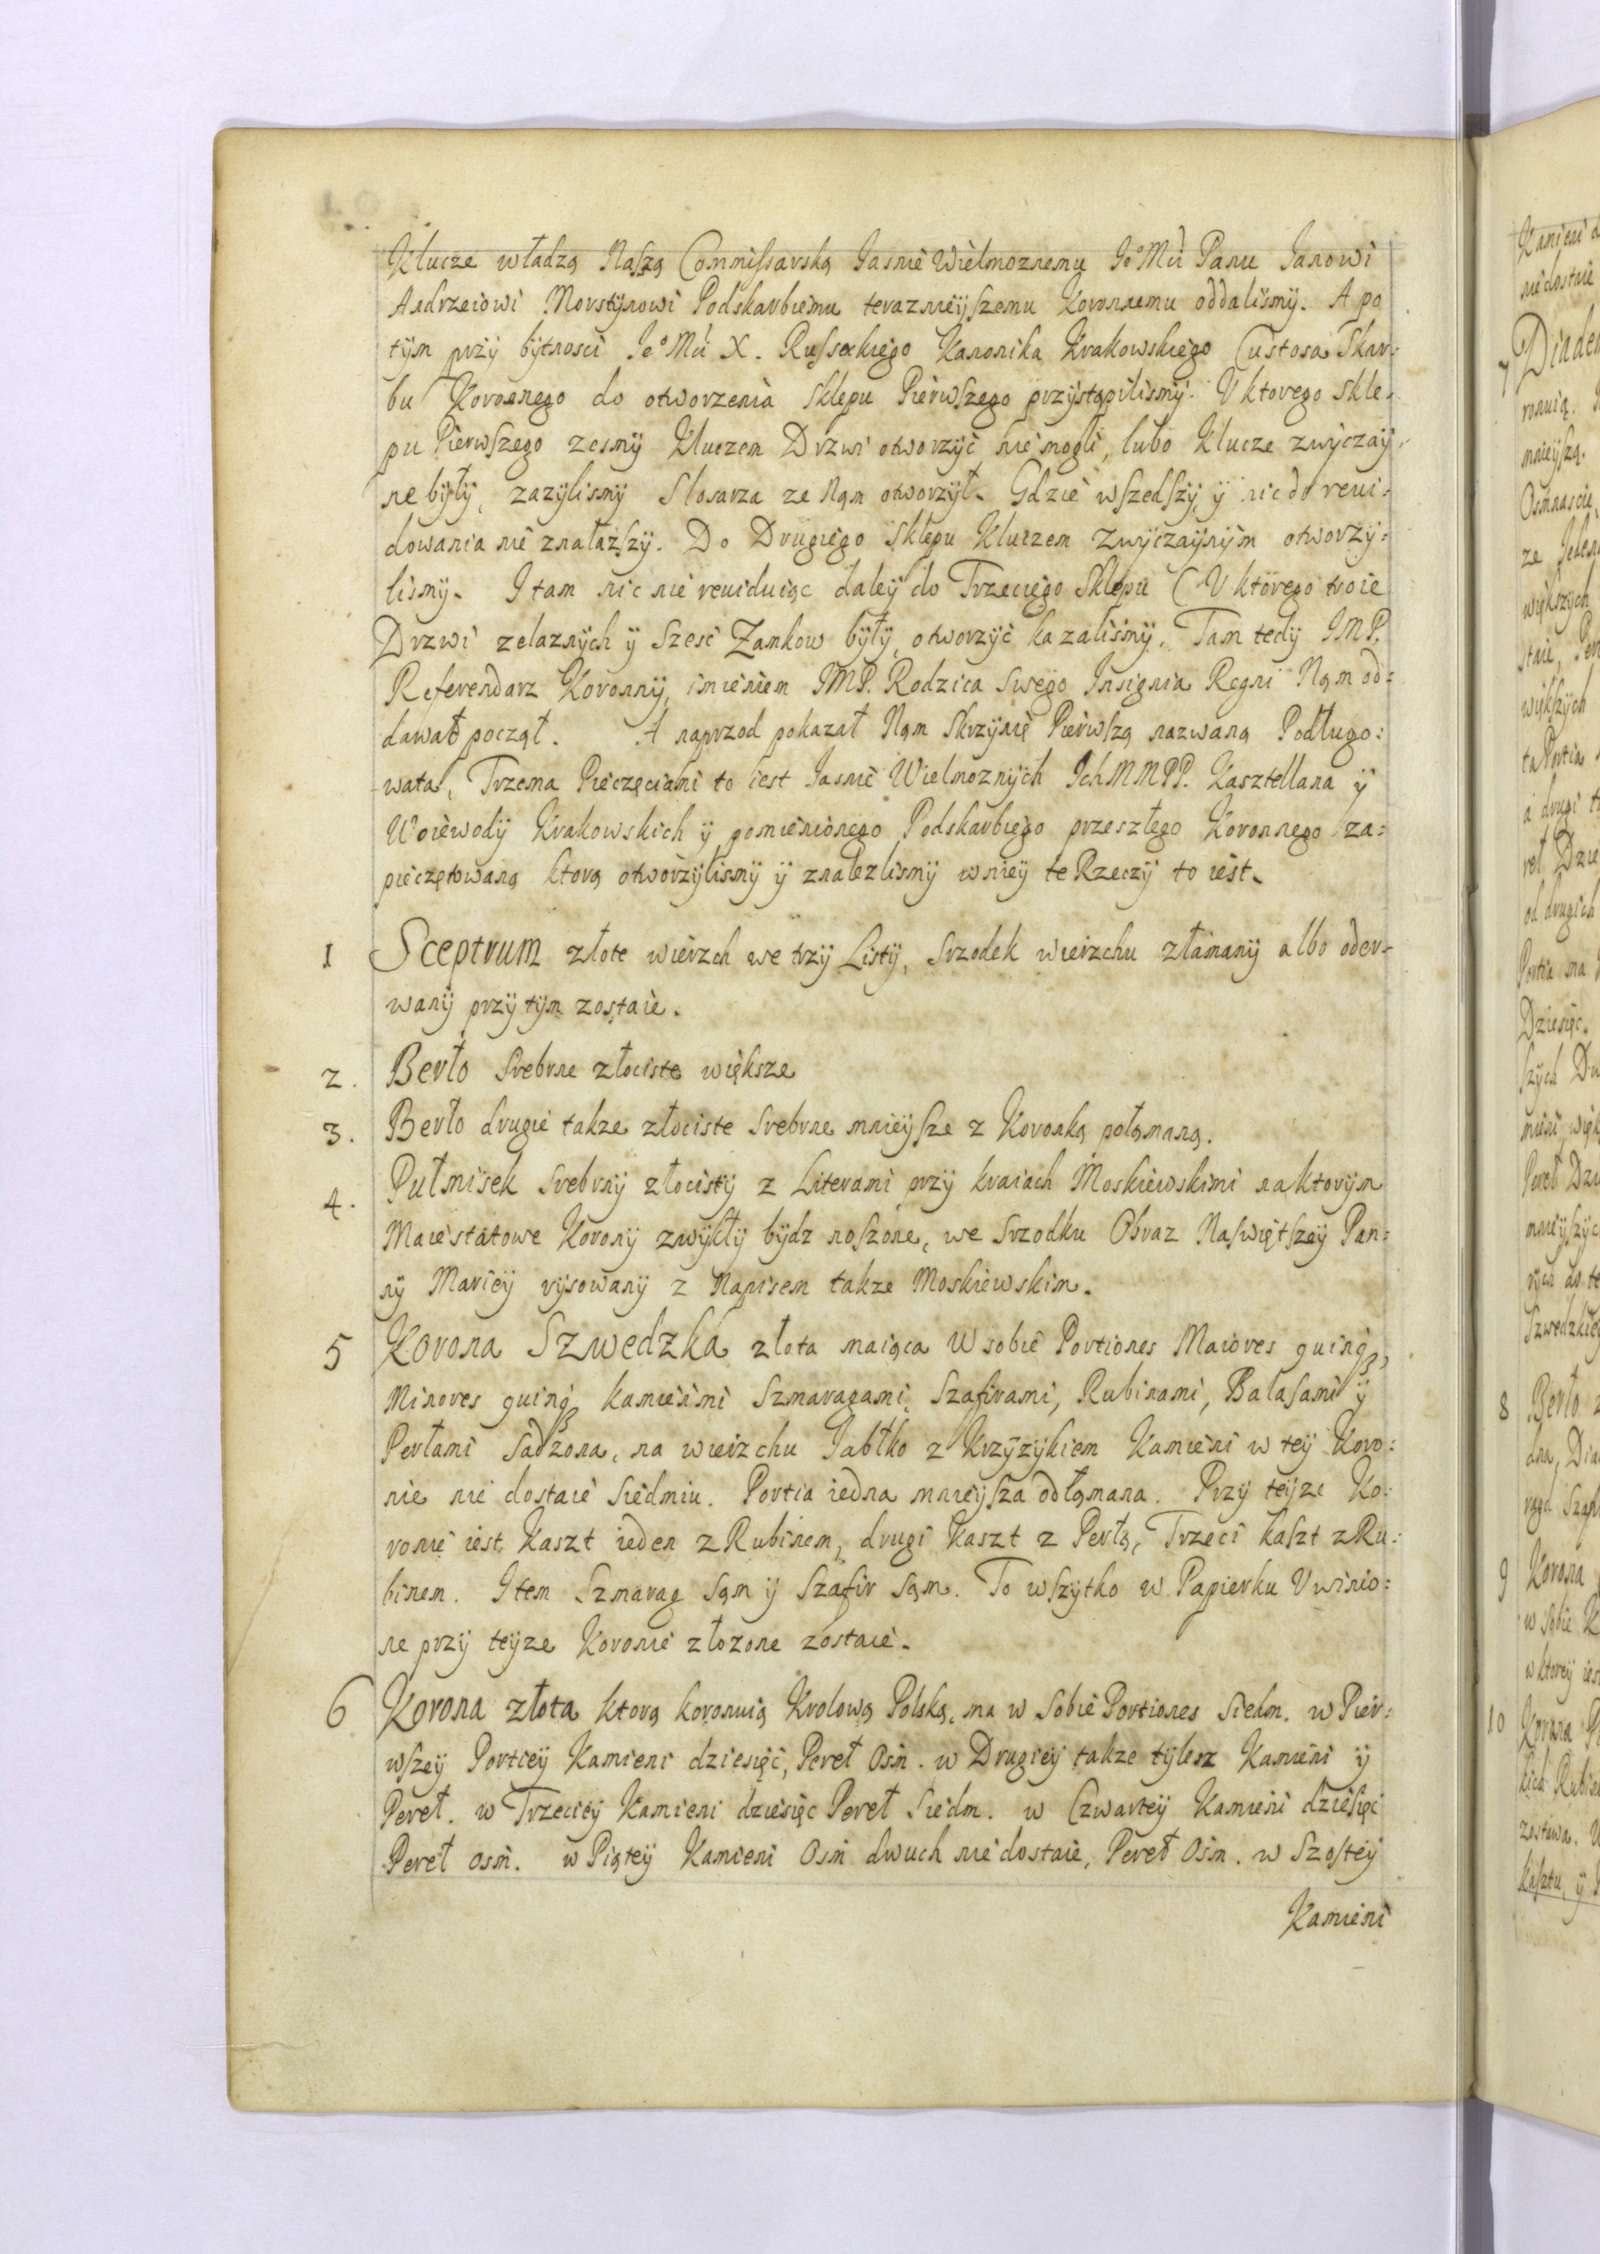 Klucze władzą Naszą Commissarską Iasnie Wielmoznemu Ie° Mći Panu Ianowi
Andrzeiowi Morstynowi Podskarbiemu teraznieyszemu Koronnemu oddalismy. A po
tym przy bytnosci Ie° Mći X. Kanonika Krakowskiego Custosa Skar-
bu Koronnego do otworzenia Sklepu Pierwszego przystąpilismy. V ktorego Skle-
pu Pierwszego zesmy Kluczem Drzwi otworzyć nie mogli, lubo Klucze zwyczay-
ne były, zazylismy Slosarza ze Nąm otworzył. Gdzie wszedszy y nic do reui-
dowania nie znalazszy. Do Drugiego Sklepu Kluczem zwyczaynym otworzy-
lismy. I tam nic nie reuiduiąc daley do Trzeciego Sklepu (V ktorego troie
Drzwi zelaznych y szesć Zamkow były, otworzyć kazalismy. Tam tedy IMP.
Referendarz Koronny, imieniem IMP. Rodzica swego Insignia Regni Nąm od-
dawał począł. A naprzod pokazał Nąm Skrzynię Pierwszą nazwaną Podługo-
wata, Trzema Pieczęciami to iest Iasnie Wielmoznych Ich MMPP. Kasztellana y
Woiewody Krakowskich y pomienionego Podskarbiego przeszłego Koronnego za-
pieczętowaną ktorą otworzylismy y znalezlismy w niey te Rzeczy to iest.
1 Sceptrum złote wierzch we trzy Listy, srzodek wierzchu złamany albo oder-
wany przy tym zostaie.
2. Berło srebrne złociste większe
3. Berło drugie takze złociste srebrne mnieysze z Koronką połąmaną.
4. Pułmisek srebrny złocisty z Literami przy kraiach Moskiewskimi na ktorym
Maiestatowe Korony zwykły bydz noszone, we srzodku Obraz Naswiętszey Pan-
ny Mariey rysowany z Napisem takze Moskiewskim.
5 Korona Szwedzka złota maiąca w sobie Portiones Maiores quinq3,
Minores quinq3 kamieńmi Szmaragami, Szafirami, Rubinami, Balasami y
Perłami sadzona, na wierzchu Iabłko z Krzyzykiem Kamieni w tey Koro-
nie nie dostaie siedmiu. Portia iedna mnieysza odłąmana. Przy teyze Ko-
ronie iest Kaszt ieden z Rubinem, drugi Kaszt z Perłą, Trzeci kaszt z Ru-
binem. Item Szmarag sąm y Szafir sąm. To wszytko w Papierku Vwinio-
ne przy teyze Koronie złozone zostaie.
6 Korona złota ktorą koronuią Krolową Polską, ma w sobie Portiones siedm. w Pier-
wszey Portiey Kamieni dziesięć, Pereł osm. w Drugiey takze tylesz Kamieni y
Pereł. w Trzeciey Kamieni dziesięc Pereł siedm. w Czwartey Kamieni dziesięć
Pereł osm. w Piątey Kamieni Osm dwuch nie dostaie, Pereł Osm. w Szostey
Kamieni
7
8
9
10